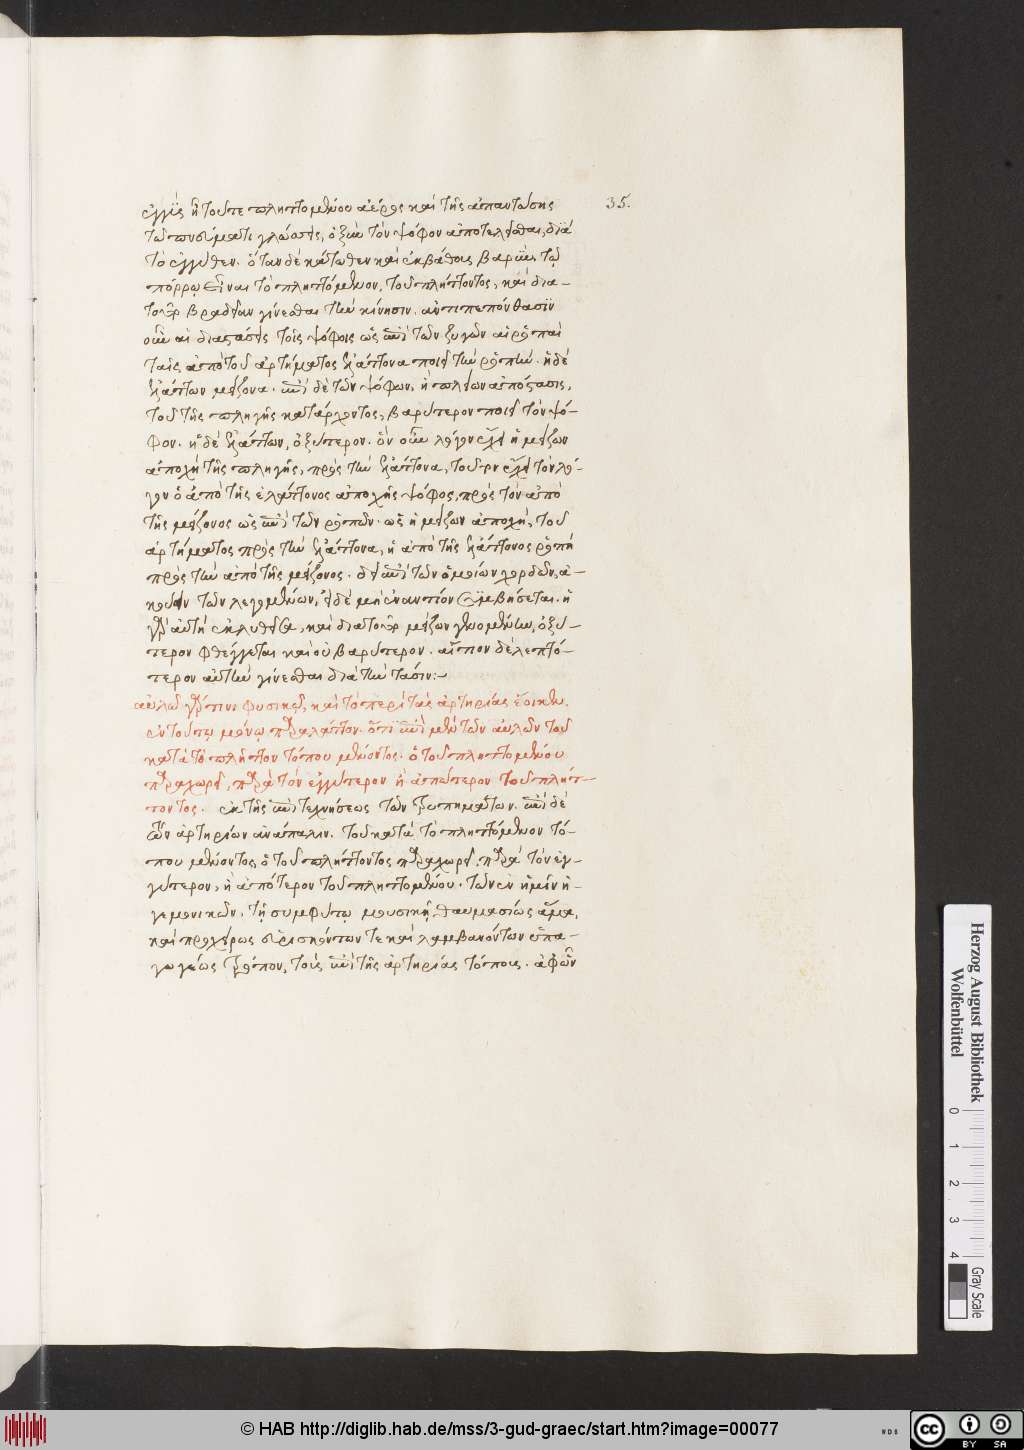 ἐγγὺς ἢ τοῦτε πληττομένου ἀέρος καὶ τῆς ἀπαντώσης 35.
τῷ πνεύματι γλώσσης, ὀξὺν τὸν ψόφον ἀποτελεῖσθαι, διὰ
τὸ ἐγγύθεν. ὅταν δὲ κάτωθεν καὶ ἐκ βάθους βαρὺν, τῷ
πόρρω εἶναι τὸ πληττόμενον, τοῦ πλήττοντος, καὶ δια-
τοῦτο βραδεῖαν γίνεσθαι τὴν κίνησιν. ἀντιπεπόνθασιν
οὖν αἱ διαστάσεις τοῖς ψόφοις ὡς ἐπὶ τῶν ζυγῶν αἱ ῥοπαὶ
ταῖς ἀπὸ τοῦ ἀρτήματος ἐλάττονα ποιεῖ τὴν ῥοπήν. ἡ δὲ
ἐλάττων μείζονα. ἐπὶ δὲ τῶν ψόφων, ἡ πλείων ἀπόστασις,
τοῦ τῆς πληγῆς κατάρχοντος, βαρύτερον ποιεῖ τὸν ψό-
φον. ἡ δὲ ἐλάττων, ὀξύτερον. ὃν οὖν λόγον ἔχει ἡ μείζων
ἀποχὴ τῆς πληγῆς, πρὸς τὴν ἐλάττονα, τοῦτον ἔχει τὸν λό-
γον ὁ ἀπὸ τῆς ἐλάττονος ἀποχῆς ψόφος, πρὸς τὸν ἀπὸ
τῆς μείζονος ὡς ἐπὶ τῶν ῥοπῶν. ὡς ἡ μείζων ἀποχὴ, τοῦ
ἀρτήματος πρὸς τὴν ἐλάττονα, ἡ ἀπὸ τῆς ἐλάττονος ῥοπὴ
πρὸς τὴν ἀπὸ τῆς μείζονος. δεῖ ἐπὶ τῶν ὁμοίων χορδῶν, ἀ-
κούειν τῶν λεγομένων, εἰ δὲ μὴ ἐναντίον συμβήσεται. ἡ
γὰρ αὐτὴ ἐκλυθεῖσα, καὶ διατοῦτο μείζων γενομένη, ὀξύ-
τερον φθέγγεται καὶ οὐ βαρύτερον. αἴτιον δὲ λεπτό-
τερον αὐτὴν γίνεσθαι διὰ τὴν τάσιν:-
αὐλῷ γάρ τινι φυσικῷ, καὶ τὸ περὶ τὰς ἀρτηρίας ἔοικεν.
ἐν τούτῳ μόνῳ παραλάττον. ὅτι ἐπὶ μὲν τῶν αὐλῶν τοῦ
κατὰ τὸ πλῆττον τόπου μένοντος. ὁ τοῦ πληττομένου
παραχωρεῖ, παρὰ τὸν ἐγγύτερον ἢ ἀπώτερον τοῦ πλήτ-
τοντος. ἐκ τῆς ἐπιτεχνήσεως τῶν τρυπημάτων. ἐπὶ δὲ
τῶν ἀρτηριῶν ἀνάπαλιν. τοῦ κατὰ τὸ πληττόμενον τό-
που μένοντος, ὁ τοῦ πλήττοντος παραχωρεῖ, παρὰ τὸν ἐγ-
γύτερον, ἢ ἀπότερον τοῦ πληττομένου. τῶν ἐν ἡμῖν ἡ-
γεμονικῶν, τῇ συμφύτῳ μουσικῇ, θαυμασίως ἅμα,
καὶ προχείρως εὑρισκόντων τε καὶ λαμβανόντων ὑπα-
γωγέως τρόπον, τοὺς ἐπὶ τῆς ἀρτηρίας τόπους. ἀφ' ὧν
Herzog August Bibliothek
Wolfenbüttel
0 1 2 3 4
Gray Scale
© HAB http://diglib.hab.de/mss/3-gud-graec/start.htm?image=00077
WDB
cc BY SA